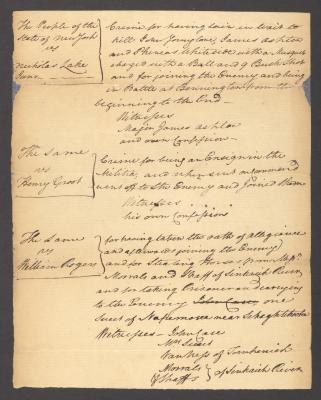 The People of the
State of New York
vs
Nicholas Lake
Crime for having lain in wait to
kill John Younglove, James Ashton
and Phineas Whiteside with a Musquet
charged with a Ball and 9 Buck Shot
and for joining the Enemy and being
in Battle at Bennington from the
beginning to the End
Witnesses
Major James Ashton
and own Confession
The Same
vs
Henry Groot
Crime for being an Ensign in the
Militia and when sent
went off to the Enemy and joined them
Witnesses
his own Confession
The Same
vs
William Rogers
for having taken the oath of allegiance
and afterwards joining the Enemy
and for Stealing Horses
and of Sinkaick River
and for taking Prisoner and carrying
to the Enemy John Case one
Sweet of near
Witnesses - John Case
Mrs Sweet
Van Ness of
of Sinkaick River